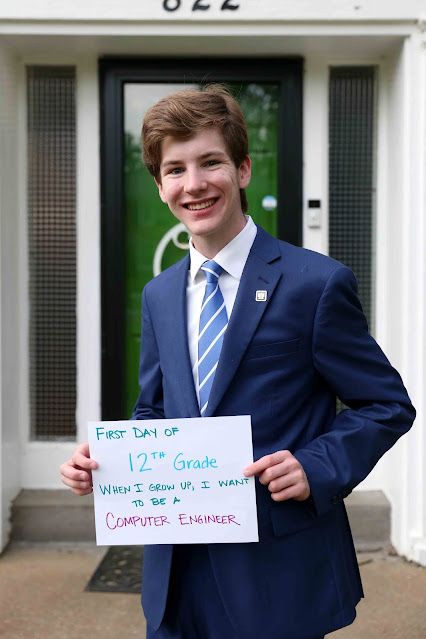 822
First Day of
12th Grade
When I grow up, I want
to be a
Computer Engineer